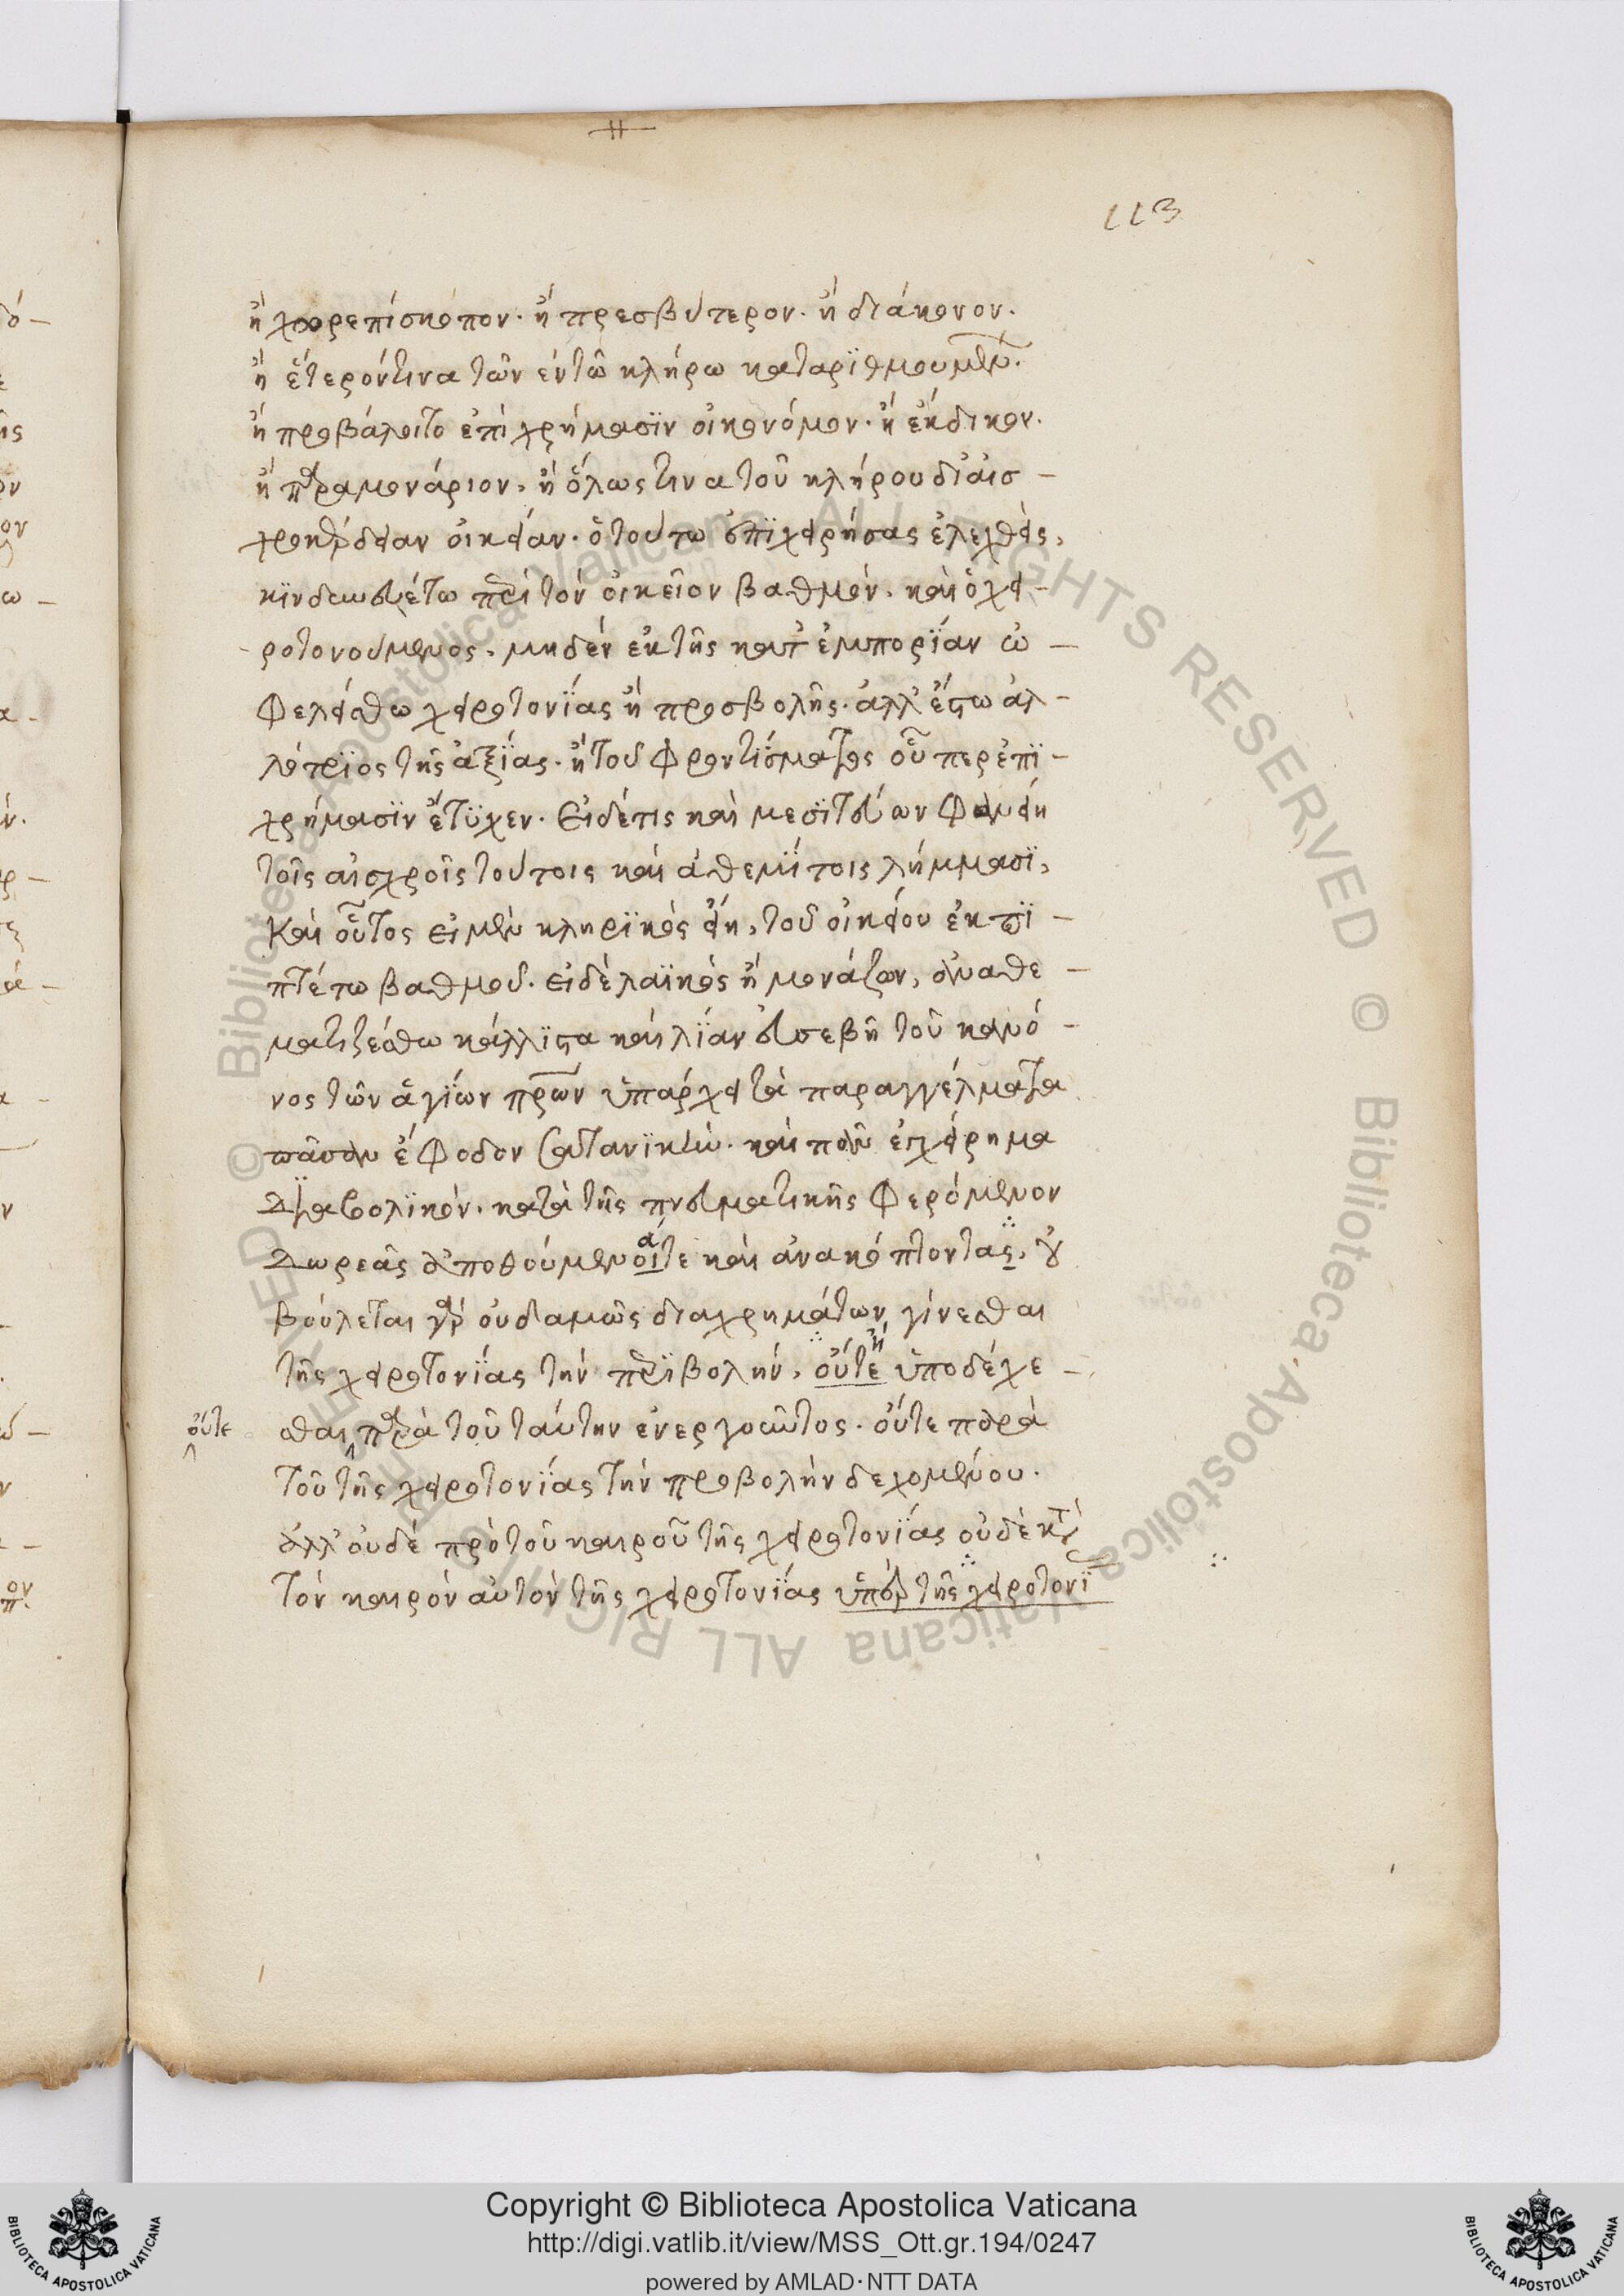 113
ἢ χωρεπίσκοπον· ἢ πρεσβύτερον· ἢ διάκονον·
ἢ ἕτερόν τινα τῶν ἐν τῶ κλήρω καταρϊθμουμένων·
ἢ προβάλοιτο ἐπὶ χρήμασϊν οἰκονόμον· ἢ ἔκδικον·
ἢ παραμονάριον, ἢ ὅλως τινα τοῦ κλήρου δι᾽ αἰσ –
χροκέρδειαν οἰκείαν· ὁ τοῦτω ἐπϊχειρήσας ἐλεγχθεὶς,
κϊνδυνευέτω περὶ τὸν οἰκεῖον βαθμόν· καὶ ὁ χει –
ροτονούμενος, μηδὲν ἐκ τῆς κατ᾽ ἐμπορΐαν ὠ –
φελείσθω χειροτονΐας ἢ προσβολῆς· ἀλλ᾽ ἔστω ἀλ –
λότρϊος τῆς ἀξΐας· ἢ τοῦ φροντΐσματος οὗπερ ἐπϊ –
χρήμασϊν ἔτϋχεν· Εἰ δέ τις καὶ μεσϊτεύων φανείη
τοῖς αἰσχροῖς τούτοις καὶ ἀθεμΐτοις λήμμασϊ,
καὶ οὗτος εἰ μὲν κληρϊκὸς εἴη, τοῦ οἰκείου ἐκπϊ –
πτέτω βαθμοῦ· εἰ δὲ λαϊκὸς ἢ μονάζων, ἀναθε –
ματιζέσθω κάλλϊστα καὶ λΐαν εὐσεβῆ τοῦ κανό –
νος τῶν ἁγΐων πρων ὑπάρχει τὰ παραγγέλματα
πᾶσαν ἔφοδον σατανϊκὴν· καὶ πᾶν ἐπιχείρημα
διαβολϊκὸν· κατὰ τῆς πνευματικῆς φερόμενον
δωρεᾶς ἀποθούμενοί τε καὶ ἀνακόπτοντας, οὐ
βούλεται γὰρ οὐδαμῶς δια χρημάτων γίνεσθαι
τῆς χειροτονΐας τὴν περϊβολὴν, οὔτε ἢ ὑποδέχε –
οὔτε
σθαι παρὰ τοῦ ταύτην ἐνεργοῦντος· οὔτε παρὰ
τοῦ τῆς χειροτονΐας τὴν προβολὴν δεχομένου·
ἀλλ᾽ οὐδὲ πρὸ τοῦ καιροῦ τῆς χειροτονΐας οὐδὲ κατὰ
τὸν καιρὸν αὐτὸν τῆς χειροτονΐας ὑπὲρ τῆς χειροτονϊ
Copyright © Biblioteca Apostolica Vaticana
http://digi.vatlib.it/view/MSS_Ott.gr.194/0247
powered by AMLAD·NTT DATA